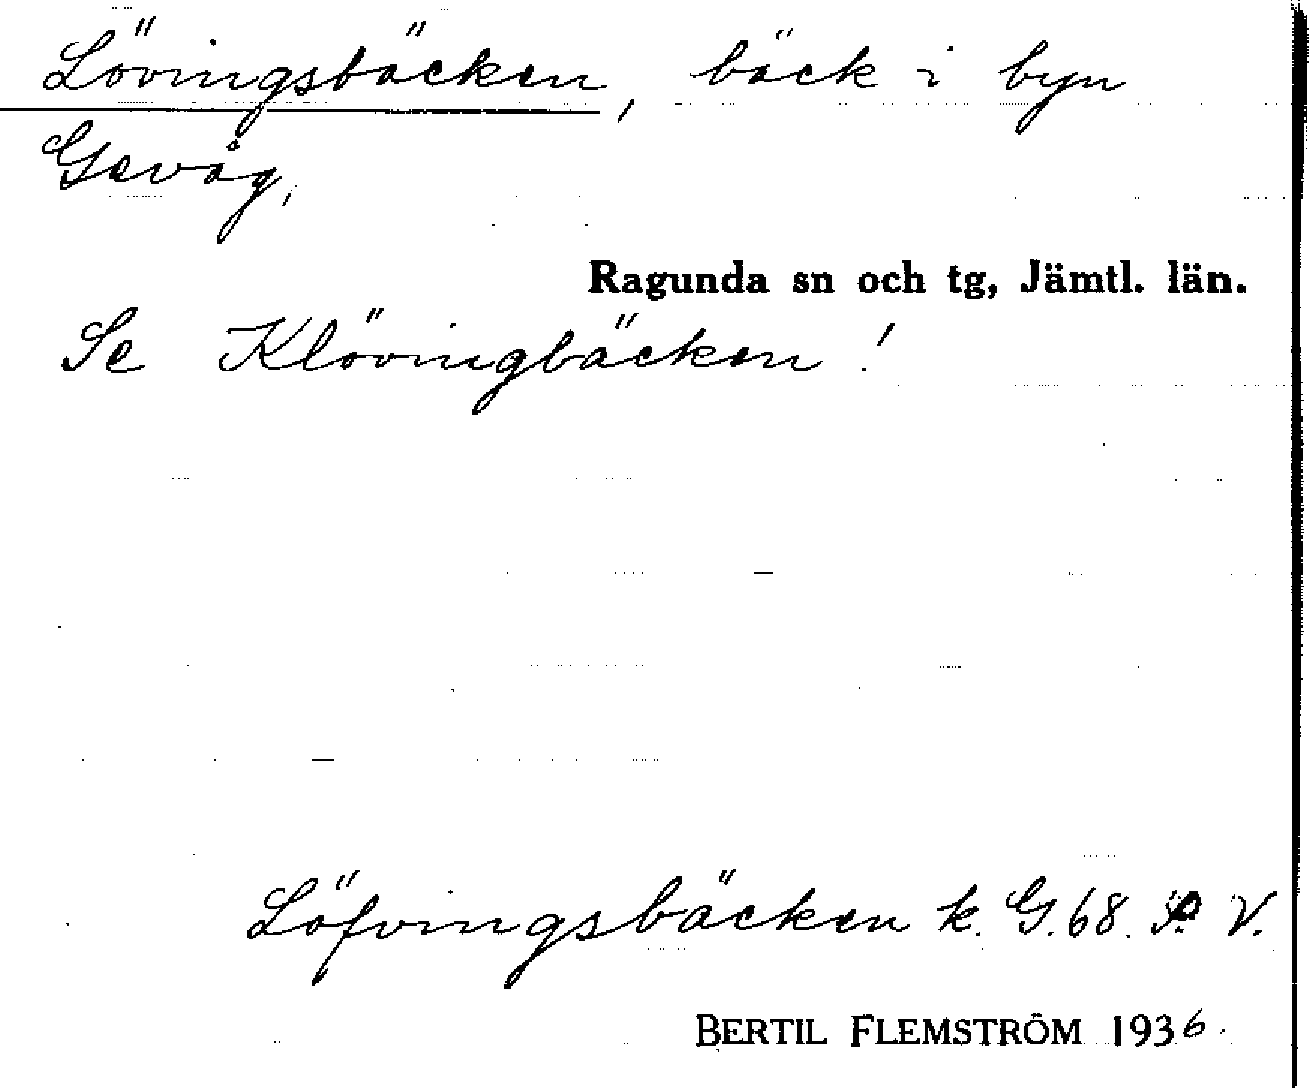 Lövingsbäcken, bäck i byn
Gevåg,
Ragunda sn och tg, Jämtl. län.
Se Klövingbäcken!
Löfvingsbäcken k. G. 68. V.
BERTIL FLEMSTRÖM 1936.